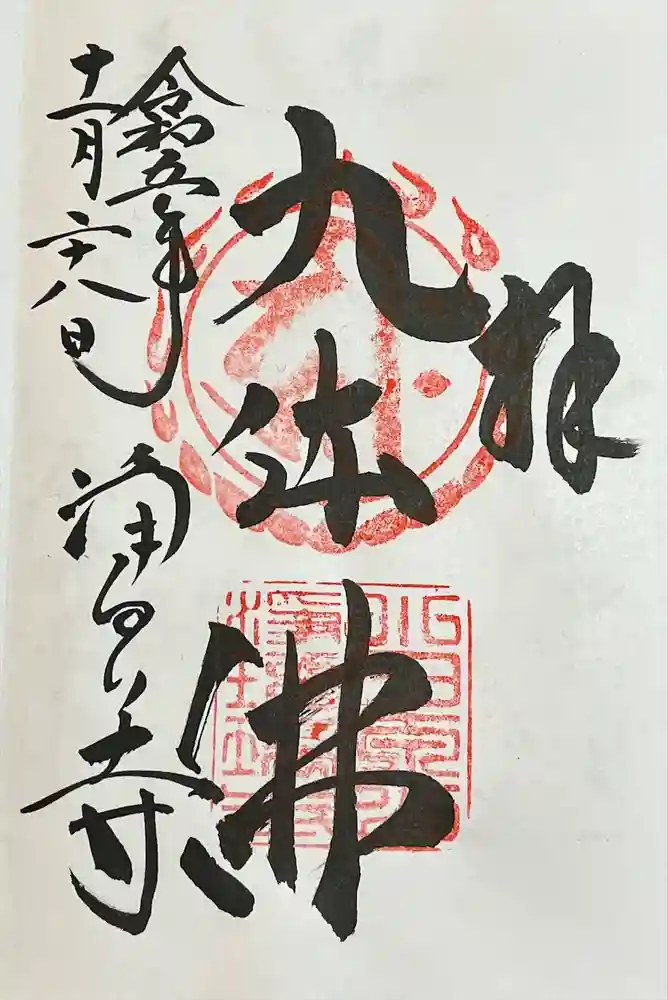 拝
九体佛
令和五年
十一月二十八日
浄るり寺